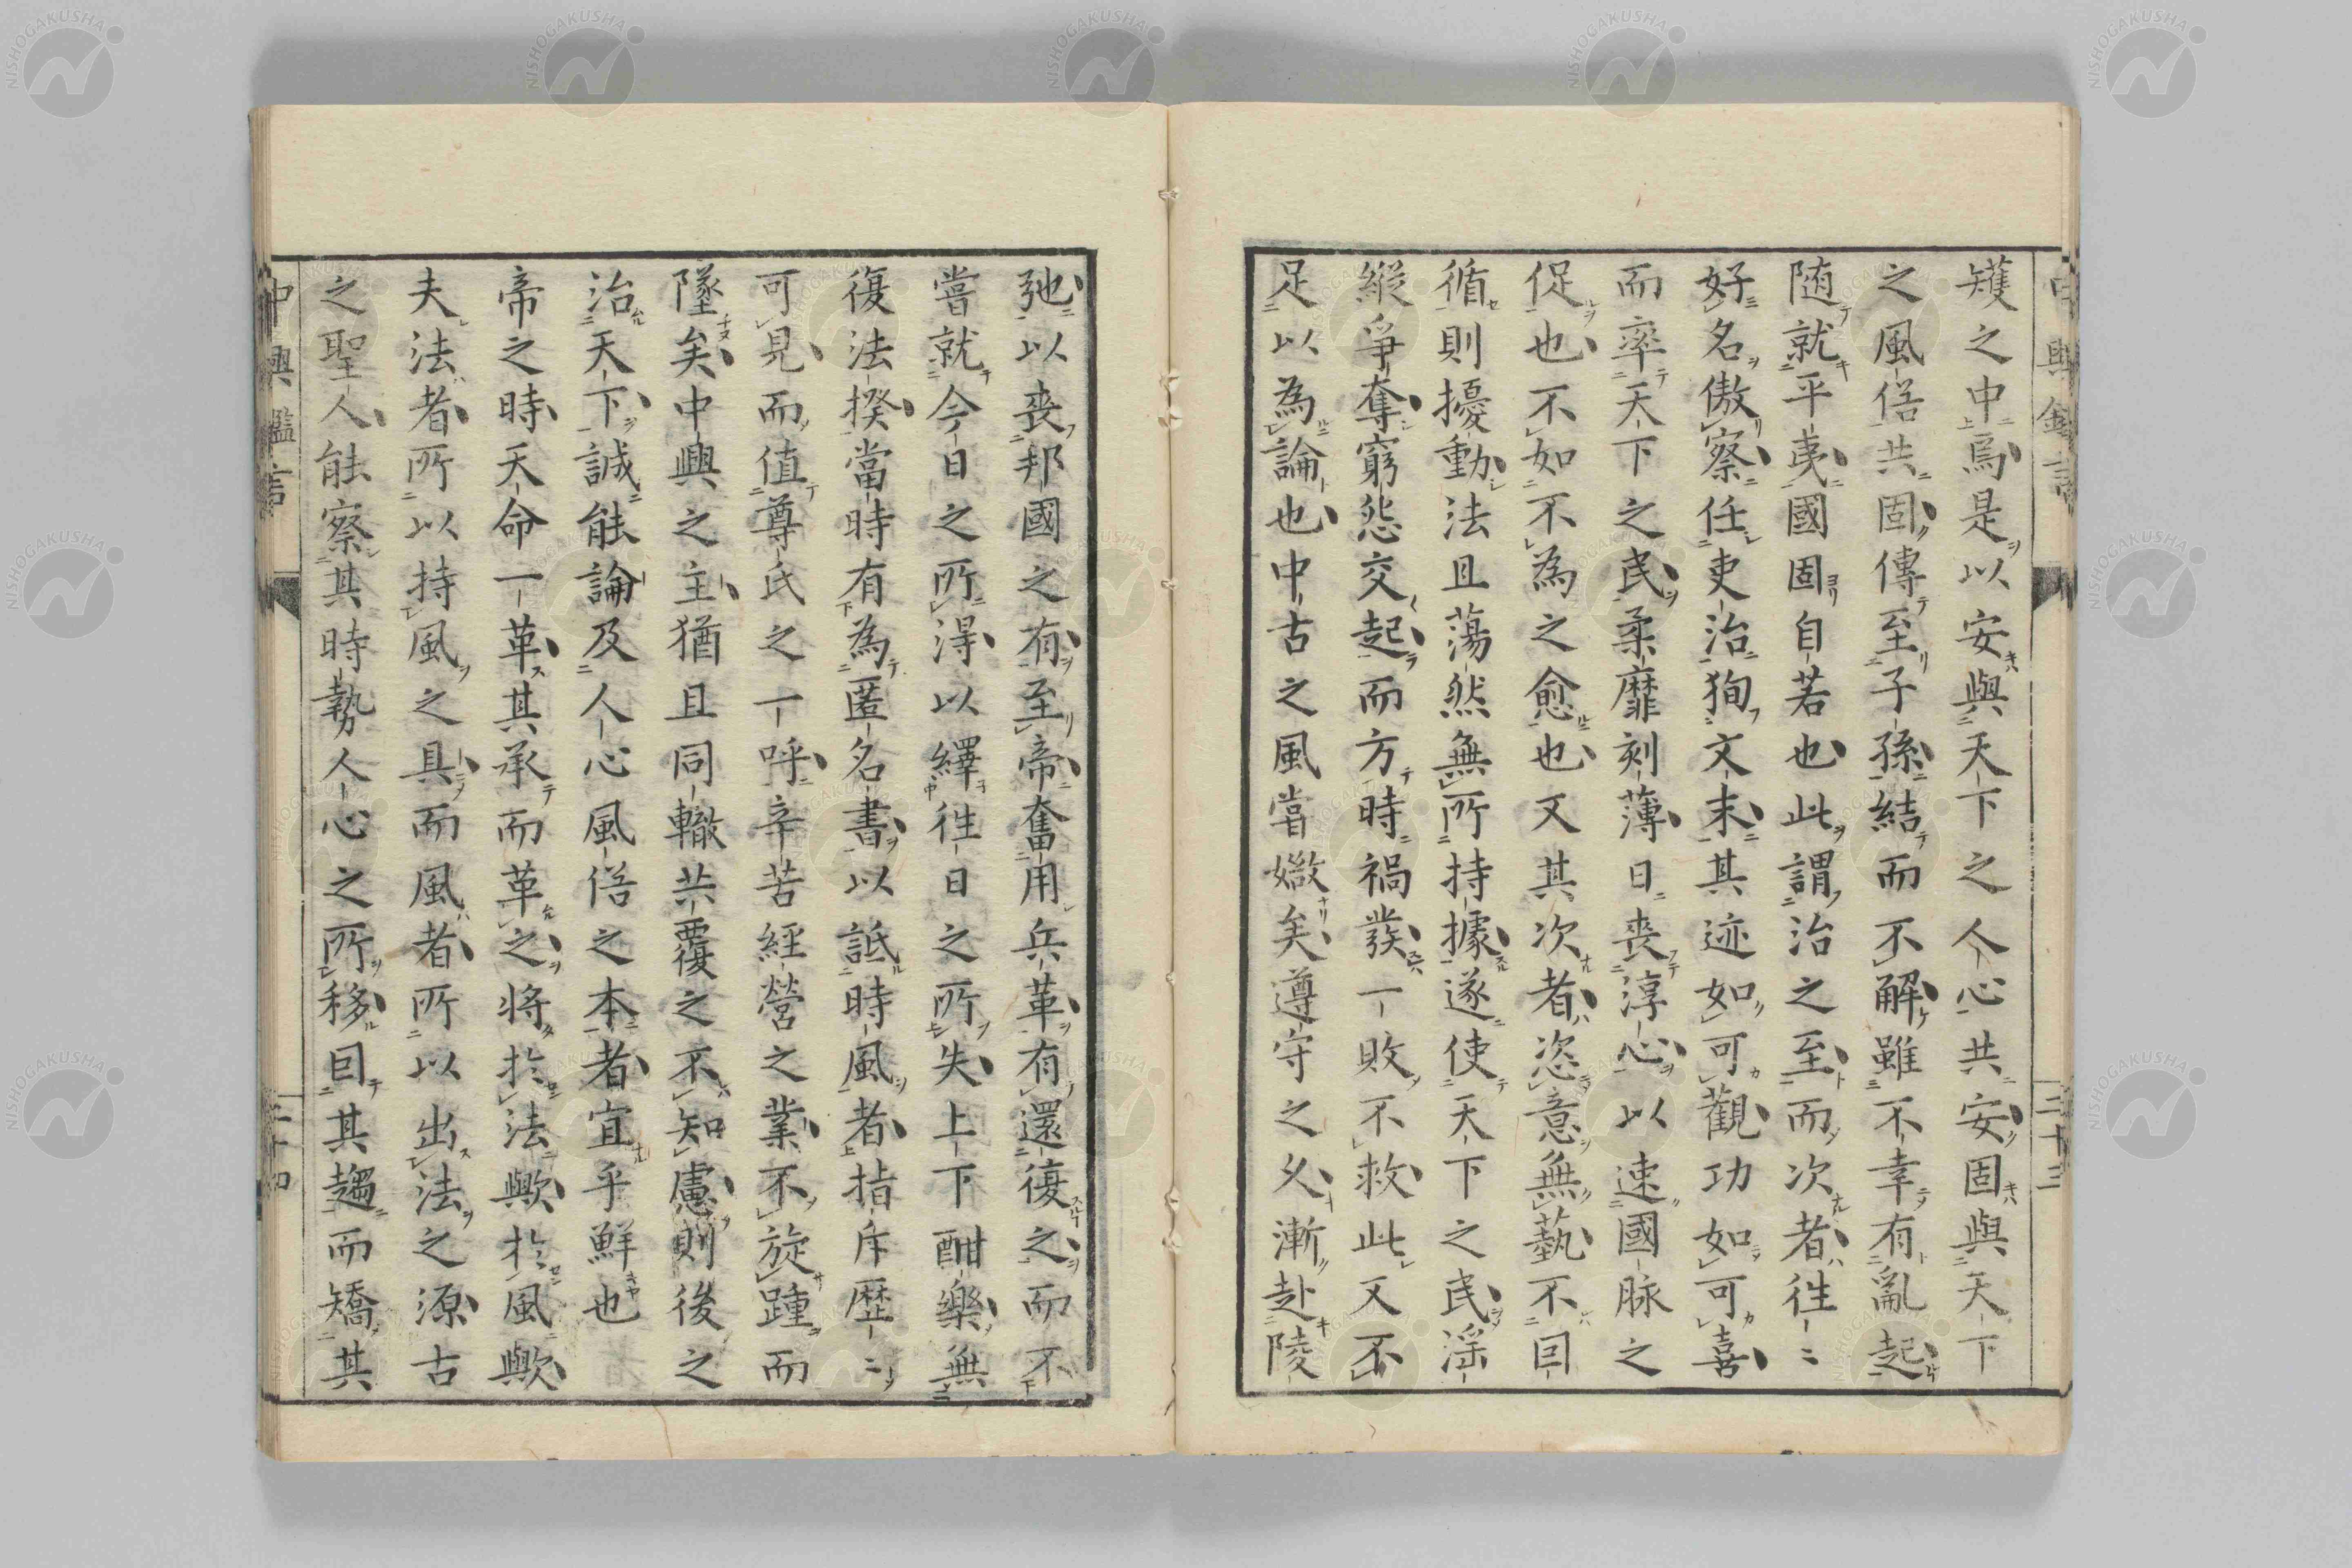 矱之中焉是以安與天下之人心共安固與天下
之風俗共固傳至子孫結而不解雖不幸有亂起
随就平夷國固自若也此謂治之至而次者徃〻
好名傲察任吏治狥文末其迹如可觀功如可喜
而率天下之民柔靡刻薄日喪淳心以速國脉之
促也不如不為之愈也又其次者恣意無藝不因
循則擾動法且蕩然無所持據遂使天下之民滛
縦爭奪窮愁交起而方時禍發一敗不救此又不
足以為論也中古之風嘗媺矣遵守之久漸赴陵
弛以喪邦國之有至帝奮用兵革有還復之而不
嘗就今日之所得以繹徃日之所失上下酣樂無
復法揆當時有為匿名書以詆時風者指斥歴〻
可見而值尊氏之一呼辛苦經營之業不旋踵而
墜矣中興之主猶且同轍共覆之不知慮則後之
治天下誠能論及人心風俗之本者宜乎鮮也
帝之時天命一革其承而革之将於法歟於風歟
夫法者所以持風之具而風者所以出法之源古
之聖人能察其時勢人心之所移因其趨而矯其
中興鑑言
三十三